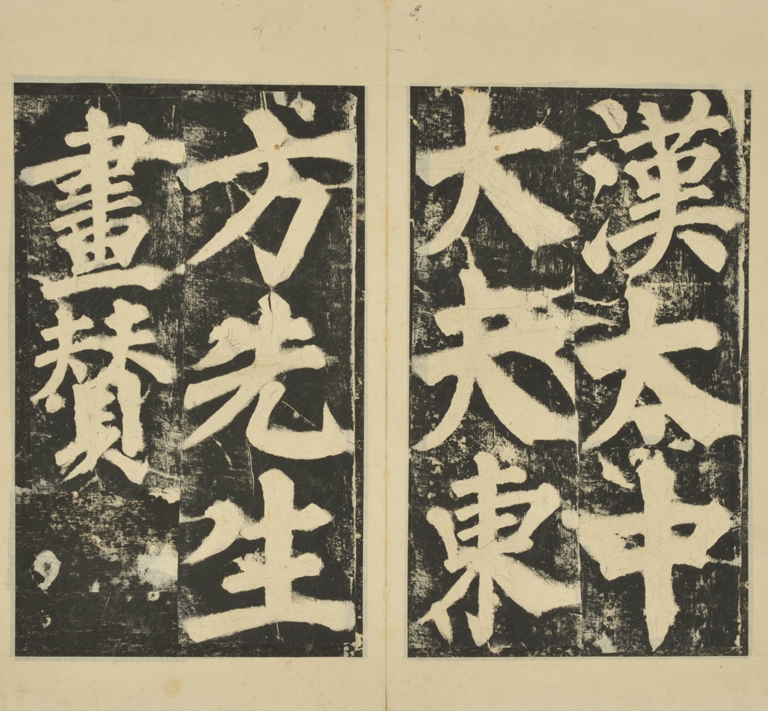 漢太中
大夫東
方先生
畫賛